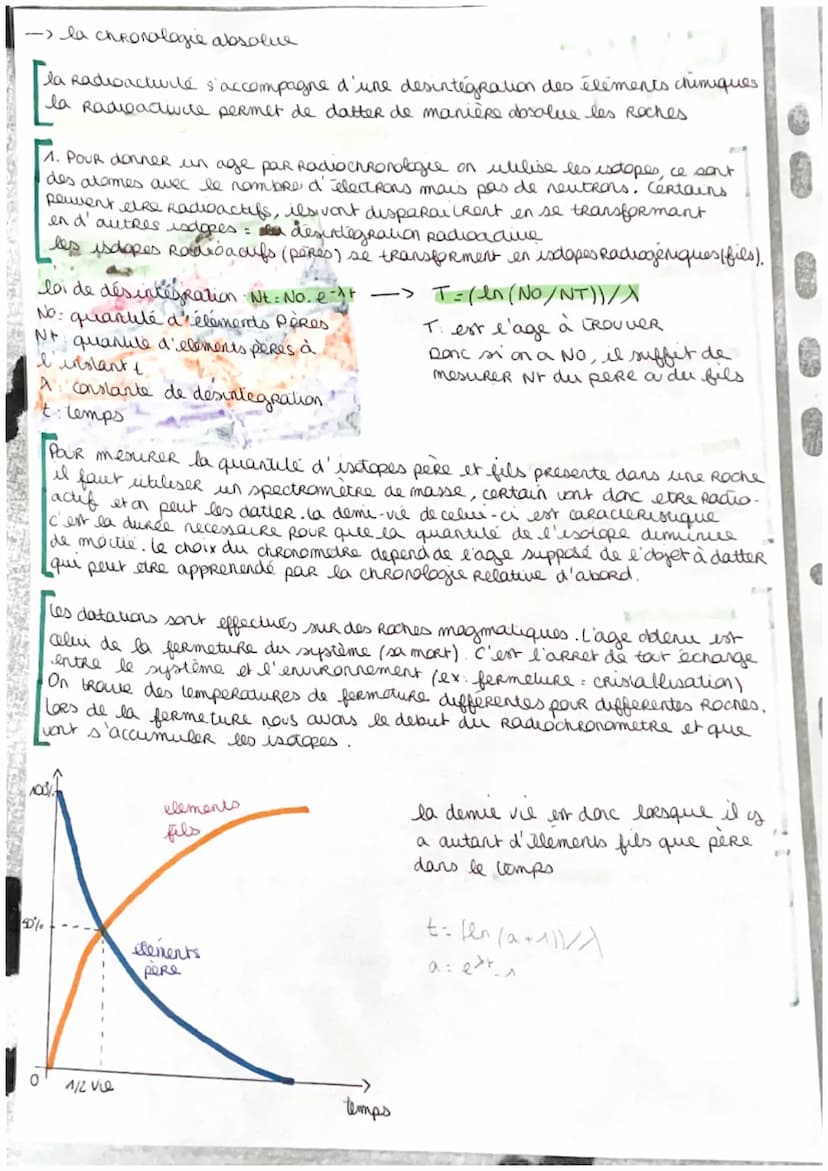 -> la chronologie absolue
la Radioactivité s'accompagne d'une desintégration des éléments chimiques
la Radioactivité permet de datter de manière absolue les Roches
1. Pour donner un age par Radiochronologie on utilise les isotopes, ce sont
des atomes avec le nombre d'électrons mais pas de neutrons. Certains
peuvent etre Radioactifs, ils vont disparaitrent en se transformant
en d'autres isotopes = la désintégration Radioactive
les isotopes Radioactifs (pères) se transforment en isotopes Radiogéniques (fils).
loi de désintégration : Nt = N0. e-λt —> T = (ln (N0/NT))/λ
N0: quantité d'éléments Pères
Nt: quantité d'elements pères à
l'instant t
λ: constante de désintegration
t: temps
T: est l'age à trouver
Donc si on a N0, il suffit de
mesurer Nt du père a du fils
Pour mesurer la quantité d'isotopes père et fils presente dans une Roche
il faut utiliser un spectromètre de masse, certain vont donc etre Radio-
actif et on peut les datter. la demie-vie de celui-ci est caracteristique
c'est la durée necessaire pour que la quantité de l'isotope diminue
de moitié. le choix du chronometre depend de l'age supposé de l'objet à datter
qui peut etre apprehendé par la chronologie Relative d'abord.
les datations sont effectués sur des Roches magmatiques. L'age obtenu est
celui de la fermeture du système (sa mort). C'est l'arret de tout échange
entre le système et l'environnement (ex: fermeture = cristallisation)
On trouve des temperatures de fermeture differentes pour differentes Roches.
Lors de la fermeture nous avons le debut du Radiochronometre et que
vont s'accumuler les isotopes.
100%
elements
fils
50%
elements
père
0
1/2 vie
temps
la demie vie est donc lorsque il y
a autant d'éléments fils que père
dans le temps
t = (ln (a+1))/λ
a = eλt-1